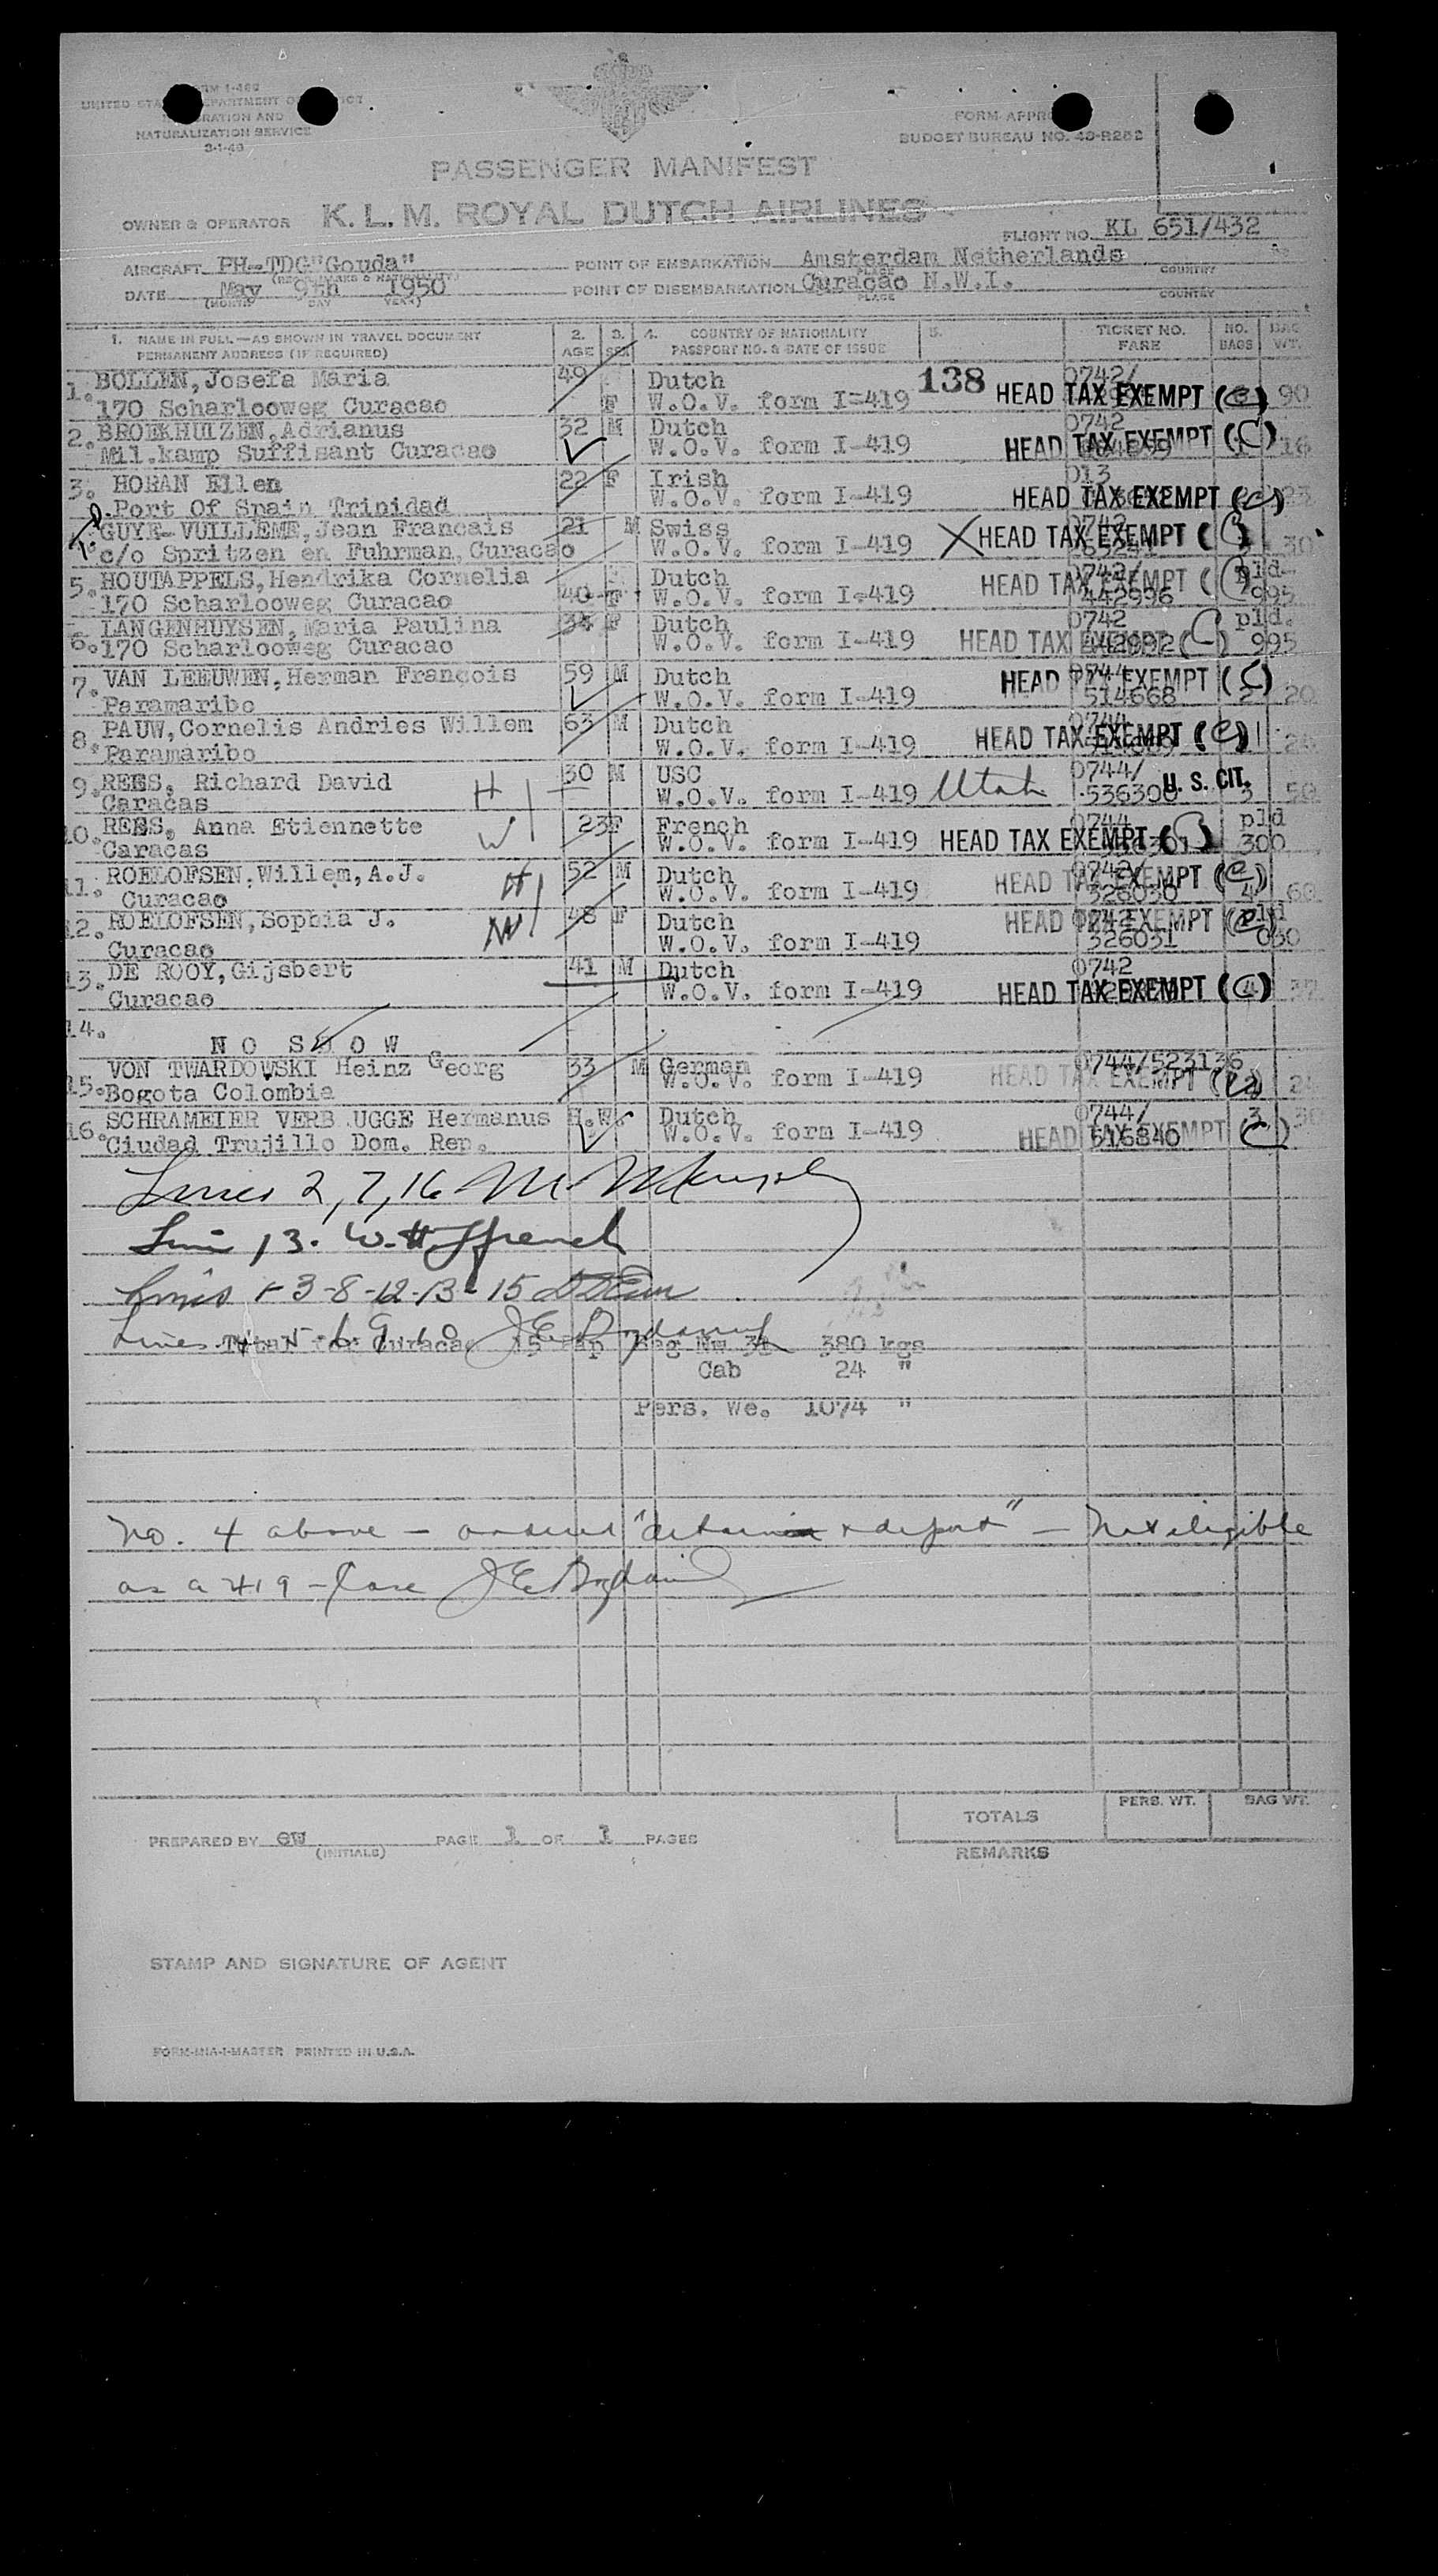 FORM I-466
UNITED STATES DEPARTMENT OF JUSTICE
IMMIGRATION AND
NATURALIZATION SERVICE
3-1-49
FORM APPROVED
BUDGET BUREAU NO. 43-R252
PASSENGER MANIFEST
OWNER & OPERATOR K. L. M. ROYAL DUTCH AIRLINES
FLIGHT NO. KL 651/432
AIRCRAFT PH-TDG"Gouda" POINT OF EMBARKATION Amsterdam Netherlands
PLACE COUNTRY
DATE May 9th 1950 POINT OF DISEMBARKATION Curaçao N.W.I.
(MONTH) DAY YEAR) PLACE COUNTRY
1. NAME IN FULL—AS SHOWN IN TRAVEL DOCUMENT 2. 3. 4. COUNTRY OF NATIONALITY 5. TICKET NO. NO. BAG
PERMANENT ADDRESS (IF REQUIRED) AGE SEX PASSPORT NO. & DATE OF ISSUE FARE BAGS WT.
1. BOLLEN, Josefa Maria 49 Dutch 138 HEAD TAX EXEMPT (C) 0742/ 90
170 Scharlooweg Curacao F W.O.V. form I-419
2. BROEKHUIZEN, Adrianus 32 M Dutch 0742
Mil.kamp Suffisant Curacao W.O.V. form I-419 HEAD TAX EXEMPT (C) 16
3. HORAN Ellen 22 F Irish 013
Port Of Spain Trinidad W.O.V. form I-419 HEAD TAX EXEMPT (C) 23
4. GUYE-VUILLEME, Jean Francais 21 M Swiss 0742
c/o Spritzen en Fuhrman, Curacao W.O.V. form I-419 X HEAD TAX EXEMPT (C) 30
5. HOUTAPPELS, Hendrika Cornelia Dutch 0742/ pld
170 Scharlooweg Curacao 40 F W.O.V. form I-419 HEAD TAX EXEMPT (C) 442996 995
6. LANGENHUYSEN, Maria Paulina 34 F Dutch 0742 pld.
170 Scharlooweg Curacao W.O.V. form I-419 HEAD TAX EXEMPT (C) 995
7. VAN LEEUWEN, Herman François 59 M Dutch 0744 HEAD TAX EXEMPT (C)
Paramaribo W.O.V. form I-419 514668 2 20
8. PAUW, Cornelis Andries Willem 63 M Dutch 0744
Paramaribo W.O.V. form I-419 HEAD TAX EXEMPT (C)
9. REES, Richard David H 30 M USC 0744/ U. S. CIT.
Caracas W.O.V. form I-419 Utah 536300 3 50
10. REES, Anna Etiennette W 23 F French 0744 pld
Caracas W.O.V. form I-419 HEAD TAX EXEMPT (C) 300
11. ROELOFSEN, Willem, A.J. H 52 M Dutch 0742/ HEAD TAX EXEMPT (C)
Curacao W.O.V. form I-419 326030 4 60
12. ROELOFSEN, Sophia J. W 48 F Dutch 0742 HEAD TAX EXEMPT (C) pld
Curacao W.O.V. form I-419 326031 030
13. DE ROOY, Gijsbert 41 M Dutch 0742
Curacao W.O.V. form I-419 HEAD TAX EXEMPT (C) 4
14.
N O S H O W
15. VON TWARDOWSKI Heinz Georg 33 M German 0744/523136
Bogota Colombia W.O.V. form I-419 HEAD TAX EXEMPT (C)
16. SCHRAMEIER VERB UGGE Hermanus H.W. Dutch 0744/ 3
Ciudad Trujillo Dom. Rep. W.O.V. form I-419 HEAD TAX EXEMPT (C) 516840
Lines 2, 7, 16
Line 13. W. H. Ffrench
Lines 1-3-8-12-13-15
Lines
Total for Curacao 15 Pap Bag Nw 380 kgs
Cab 24 "
Pers. We. 1074 "
No. 4 above — ordered "detained & deport" — Not eligible
as a 419 - Case
TOTALS PERS. WT. BAG WT.
PREPARED BY GW PAGE 1 OF 1 PAGES
(INITIALS) REMARKS
STAMP AND SIGNATURE OF AGENT
FORM-MIA-I-MASTER PRINTED IN U.S.A.